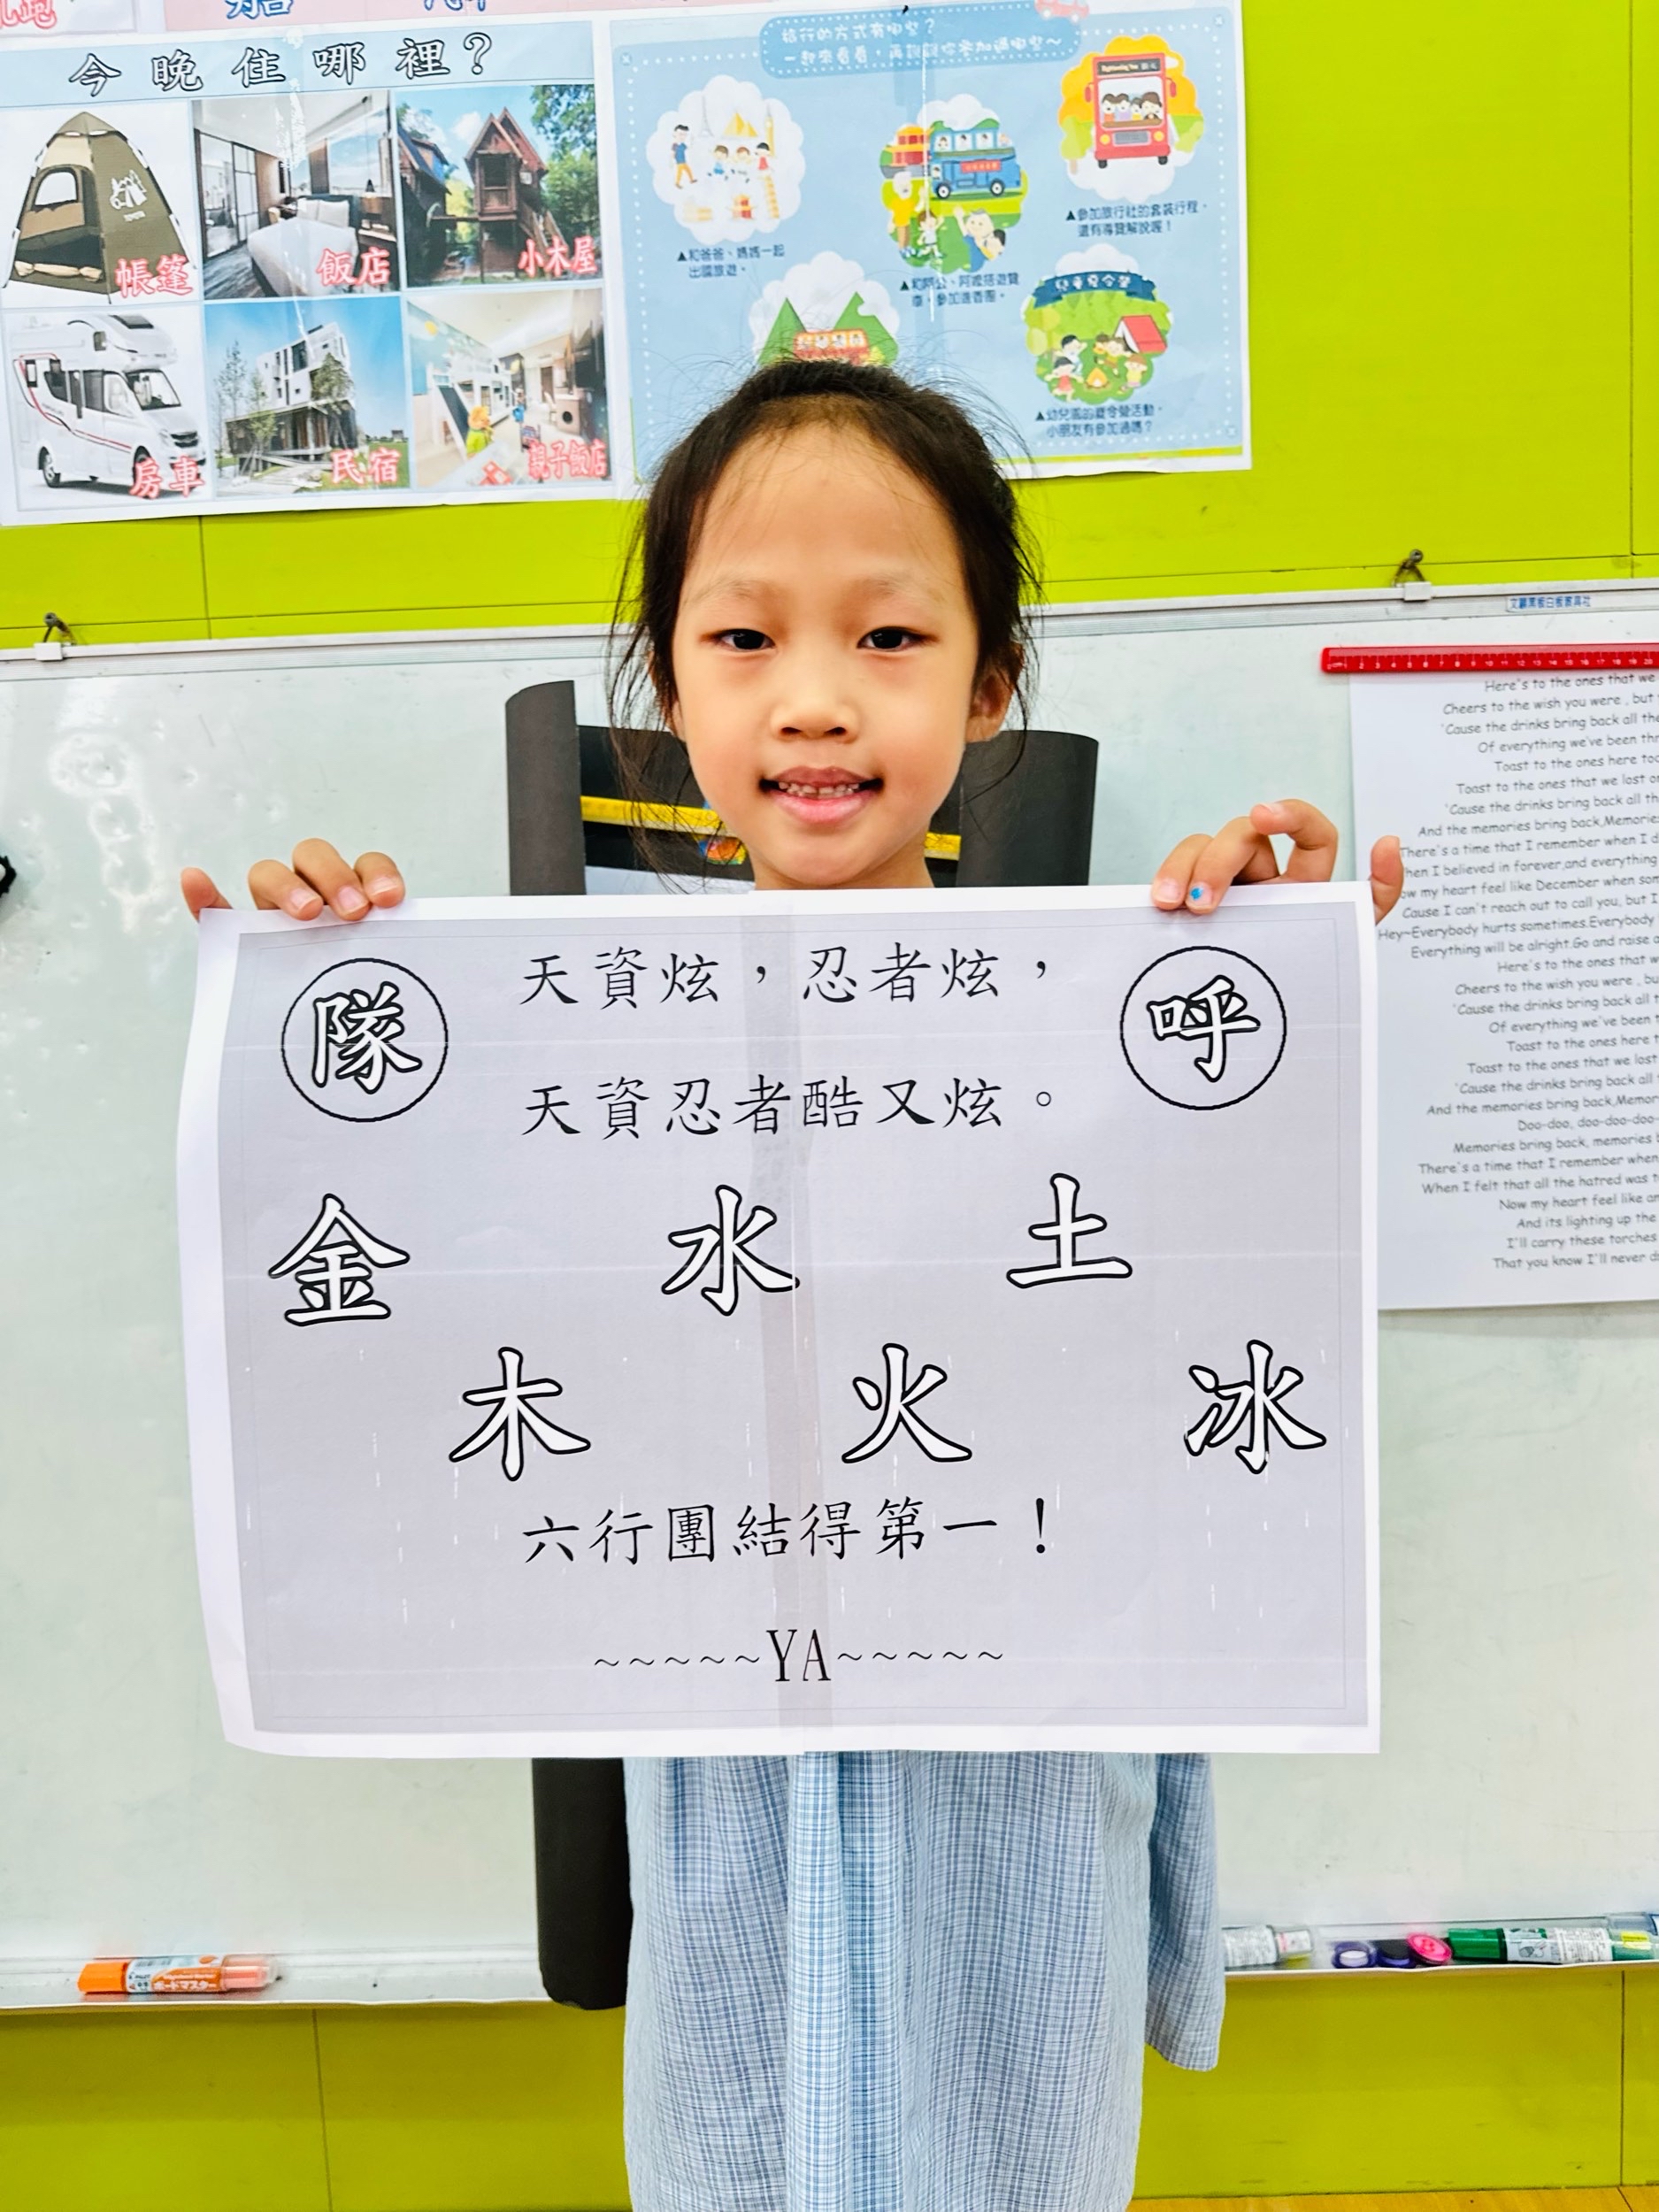 今晚住哪裡？
帳篷
飯店
小木屋
房車
民宿
親子飯店
旅行的方式有哪些？
一起來看看，再說說你參加過哪些～
▲和爸爸、媽媽一起
出國旅遊。
▲和阿公、阿嬤搭遊覽
車，參加進香團。
▲參加旅行社的套裝行程，
還有導覽解說喔！
▲幼兒園的夏令營活動，
小朋友有參加過嗎？
隊
呼
天資炫，忍者炫，
天資忍者酷又炫。
金 水 土
木 火 冰
六行團結得第一！
~~~~~YA~~~~~
Here's to the ones that we
Cheers to the wish you were , but
'Cause the drinks bring back all the
Of everything we've been thr
Toast to the ones here too
Toast to the ones that we lost o
'Cause the drinks bring back all th
And the memories bring back,Memories
There's a time that I remember when I d
hen I believed in forever,and everything
ow my heart feel like December when som
Cause I can't reach out to call you, but I
Hey~Everybody hurts sometimes.Everybody
Everything will be alright.Go and raise a
Here's to the ones that w
Cheers to the wish you were , bu
'Cause the drinks bring back all t
Of everything we've been t
Toast to the ones here t
Toast to the ones that we lost
'Cause the drinks bring back all
And the memories bring back,Memor
Doo-doo, doo-doo-doo-
Memories bring back, memories b
There's a time that I remember when
When I felt that all the hatred was t
Now my heart feel like an
And its lighting up the
I'll carry these torches
That you know I'll never d
ボードマスター